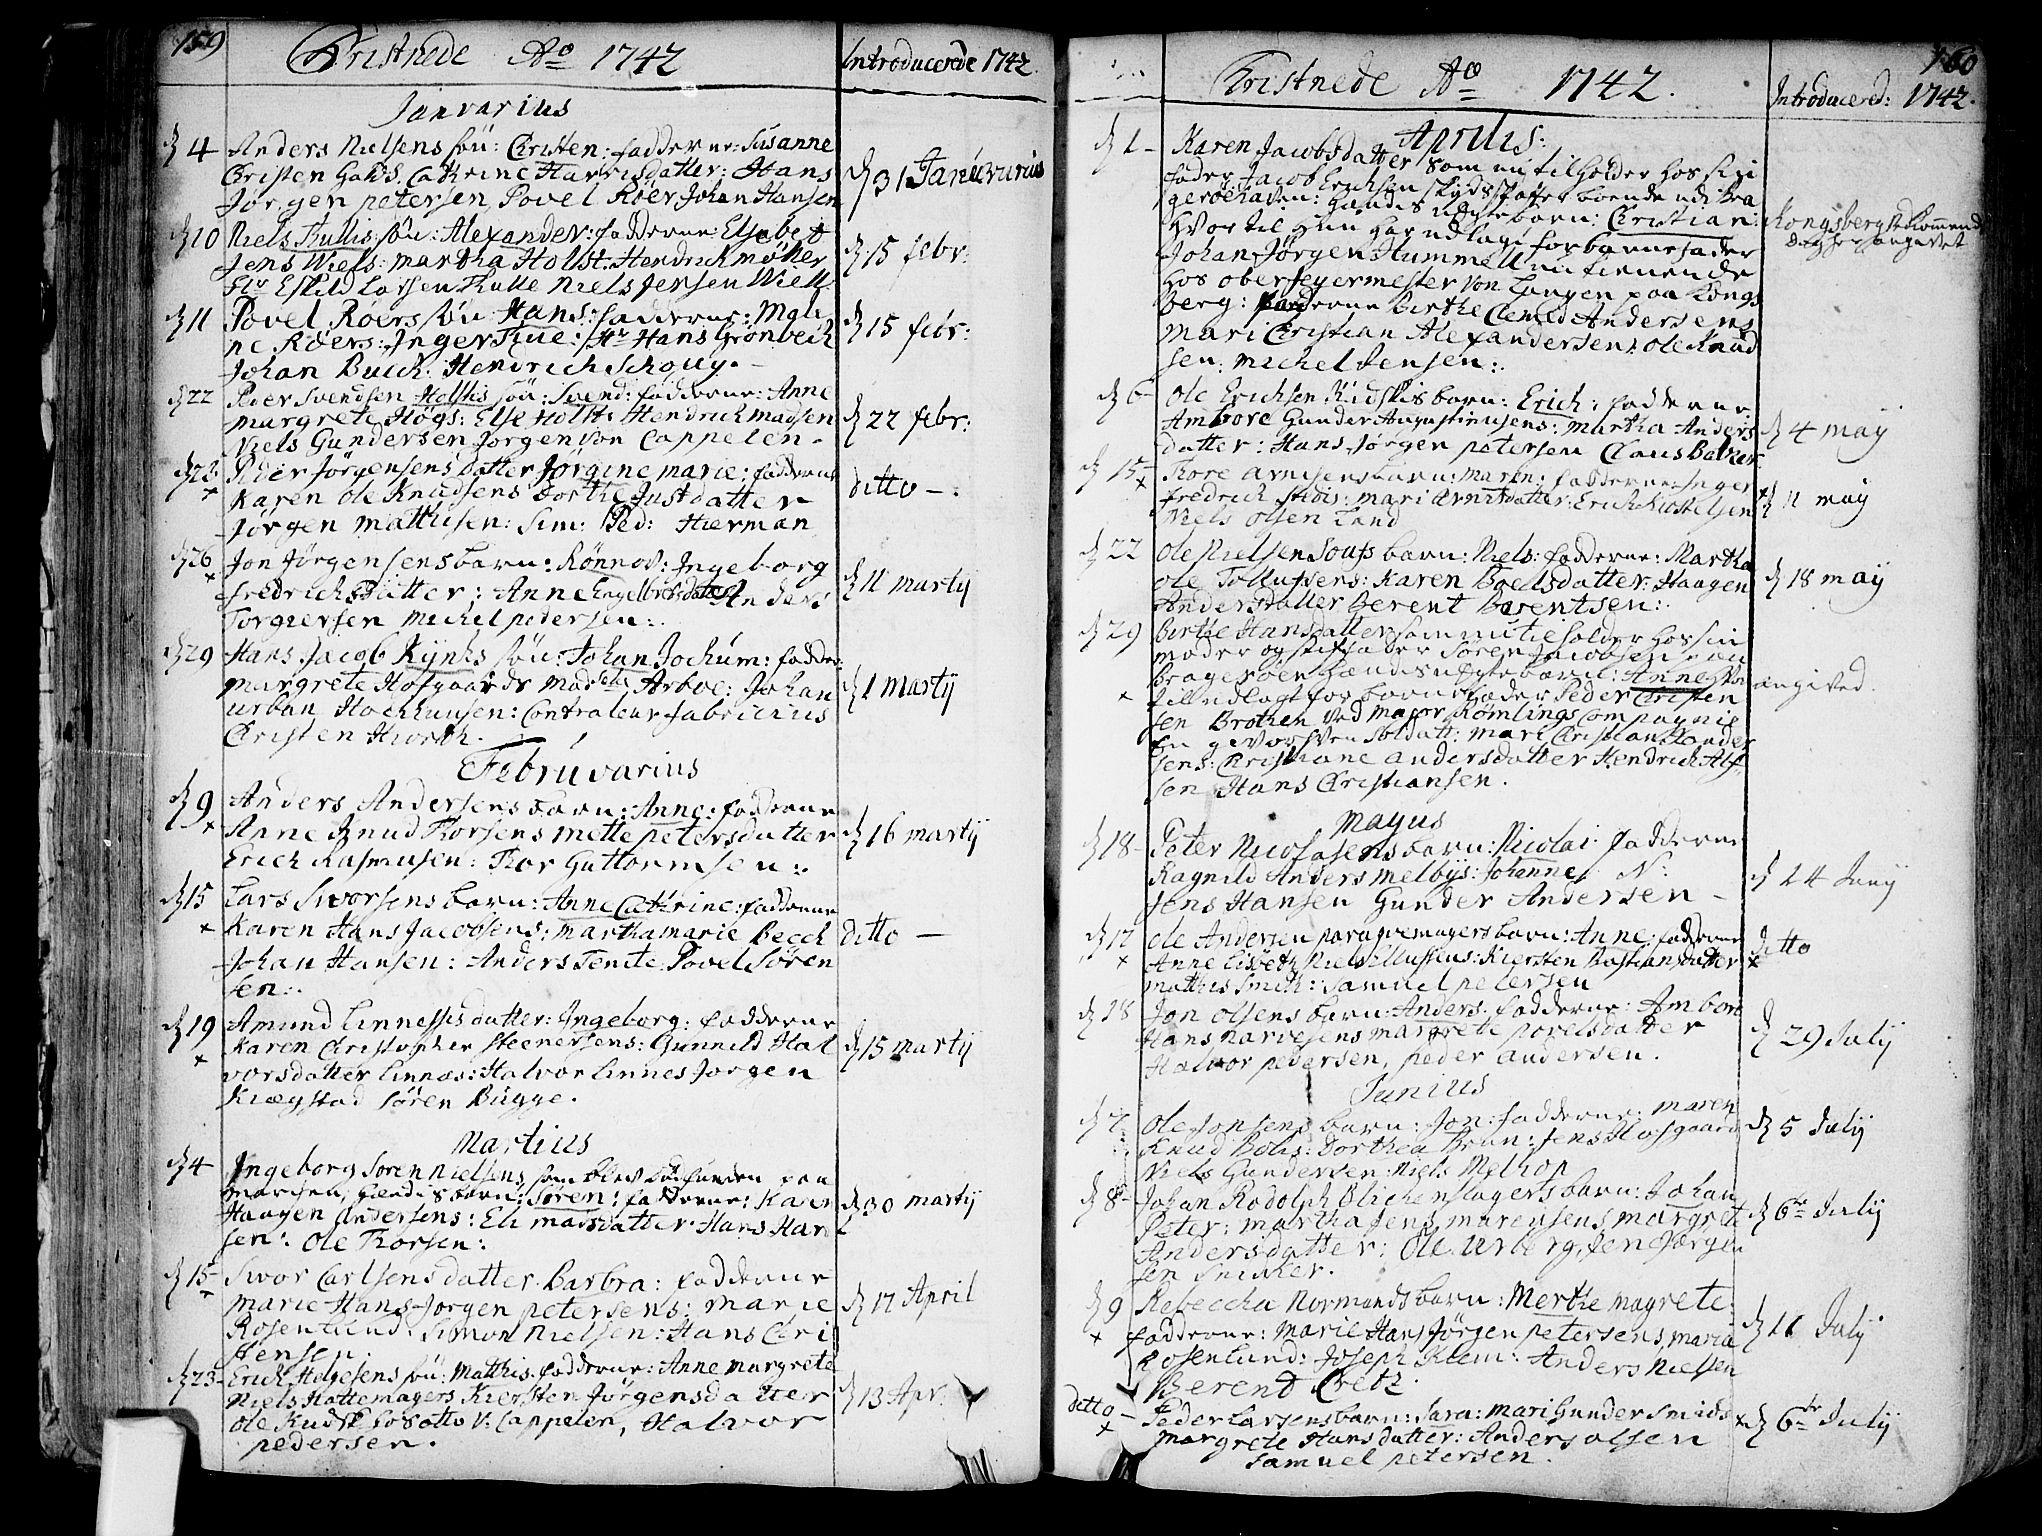 159
Christnede Ao 1742
Introducerede 1742.
Januarius
d 4 Anders Nielsens søn: Christen: fadderne: Susanne
Christen Christine Harrisdatter: Hans
Jørgen petersen, Povel Röer Johan Hansen
d 31 Januvarius
d 10 Niels Thullis søn: Alexander: fadderne: Elsebet
Jens Wiels: martha Holst. Hendrich möller
Eskild Larsen Thulle Niels Jensen Wiell.
d 15 febr:
d 11 Povel Röers søn Hans: fadderne: Mali
ne Röers: Inger Hr Hans Grönbech
Johan Buch: Hendrich Schouy.
d 15 febr:
d 22 Peder Svendsen Holstis søn: Svend: fadderne: Anne
margrete Högs: Else Holst: Hendrich madsen
Niels Gundersen Jørgen von Cappelen.
d 22 febr:
d 23 Peder Jørgensens datter Jørgine marie: fadderne
x Karen Ole Knudsens Dorthe Justdatter
Jørgen Mathisen: Sim: Ped: Hierman
ditto -.
d 26 Jon Jørgensens barn: Rönnov: Ingeborg
x fredrichs Datter: Anne Engelbretsdatter Anders
Torgiersen Michel pedersen:.
d 11 martij
d 29 Hans Jacob Kynhs søn: Johan Jochum: fadder:
margrete Hofgaards Arboe: Johan
urban Stockhunsen: Contraleur fabricius
Christen Hiorth.
d 1 martij
Februvarius
d 9 Anders Andersens barn: Anne: fadderne
x Anne Knud Thorsens mette petersdatter
Erich Rasmusen: Thor Guttormsen:.
d 16 martij
d 15 Lars Sivorsens barn: Anne Cathrine: fadderne
x Karen Hans Jacobsens: martha marie Becch
Johan Hansen: Anders Tente Povel Sören
sen:.
ditto -
d 19 Amund Linnessis datter: Ingeborg: fadderne
x Karen Christopher Steenersens: Gunnild Hal
vorsdatter Linnæs: Halvor Linnes Jorgen
Kiægstad Sören Bügge.
d 15 martij
Martius
d 4 Ingeborg Sören Nielsens, som blev paa
marchen, hendis barn: Sören: fadderne: Karen
Haagen Andersens: Eli madsdatter Hans Han
sen: Ole Thorsen:.
d 30 martij
d 15 Sivor Carlsens datter Barbra: fadderne
Marie Hans Jorgen petersens: Marie
Rosenlund. Simon Nielsen: Hans Chri
stensen.
d 17 April
d 23 Erich Helgesens søn: Matthis. fadderne: Anne margrete
Niels Hattemagers Kiersten Jörgensdatter
Ole Kudsk hos otto V: Cappelen, Halvor
pedersen.
d 13 Apr:
160
Christnede Ao 1742.
Introducered: 1742.
Aprilis:
d 1 Karen Jacobsdatter Som nu tilholder hos sin
fader Jacob Erichsen skydsskaffer boende udi Bra
geröehafen: hændis uægte barn: Christian:
Hvor til hun har udlagt for barnefader
Johan Jørgen Hummell nu tienende
hos oberjegermester von Langen paa Kongs
berg: fadderne Birthe Clemed Andersens
mari Christian Alexandersens: ole Knud
sen: michel Jensen:.
Kongsberg
angivet
d 6 Ole Erichsen Kudskis barn: Erich: fadderne
Ambore Gunder Augustinusens: Martha Anders
datter: Hans Jørgen petersen Claus Balker.
d 4 maij
d 15 Thore Arnesens barn: Maren: fadderne Inger
x fredrich Stidis: mari Arntsdatter: Erich Kiostelsen
Niels Olsen Land
d 11 maij
d 22 Ole Nielsen barn: Niels: fadderne: Martha
Ole Tollufsens: Karen Poelsdatter: Haagen
Andersdatter Berent Berentsen:.
d 18 maij
d 29 Birthe Hansdatter som nu tilholder hos sin
moder og Stiffader Sören Jacobsen paa
bragerøen hændis uægte barn: Anne hvor
x till udlagt for barne fader Peder Christen
sen Brothen ved major Römlings Compagnie
en geworfven Soldatt: Mari Christian Xander
sens: Christiane Andersdatter Hendrich Alf
sen Hans Christiansen.
angived.
Majus
d 18 Peter Nicolasens barn: Nicolai fadderne
Ragnild Anders Melbÿs: Johanne N:
Jens Hansen Gunder Andersen -
d 24 Junij
d 17 Ole Andersen barn: Anne: fadderne
x Anne Lisbeth Niels Ellufsens: Kiersten Bastiansdatter
mathis Smith: Samuel petersen
ditto
x
d 18 Jon Olsens barn: Anders. fadderne: Ambor
Hans Narvesens margrete povelsdatter
Halvor pedersen, peder andersen.
d 29 Julij
Junius
d 7 Ole Jonsens barn: Jon: fadderne: maren
Knud Bolis: Dorthea Brun: Jens Hofgaard
Niels Gundersen: Niels Melhop
d 5 Julij
d 8 Johan Rodolph Blichenslagers barn: Johan
Peter: martha Jens marensens, margrete
Andersdatter: Ole Urberg, Jen Jørgen
sen Snikker.
d 6te Julij
d 9 Rebeccha Normands barn: Merthe Magrete:
x fadderne: Marie Hans Jörgen petersens, maria
Rosenlund: Joseph Klem: Anders Nielsen
Berent Cretz.
d 11 Julij
ditto Peder Larsens barn: Sara: mari Gunder Smids
x margrete Hansdatter: Anders olsen
Samuel petersen.
x d 6te Julij